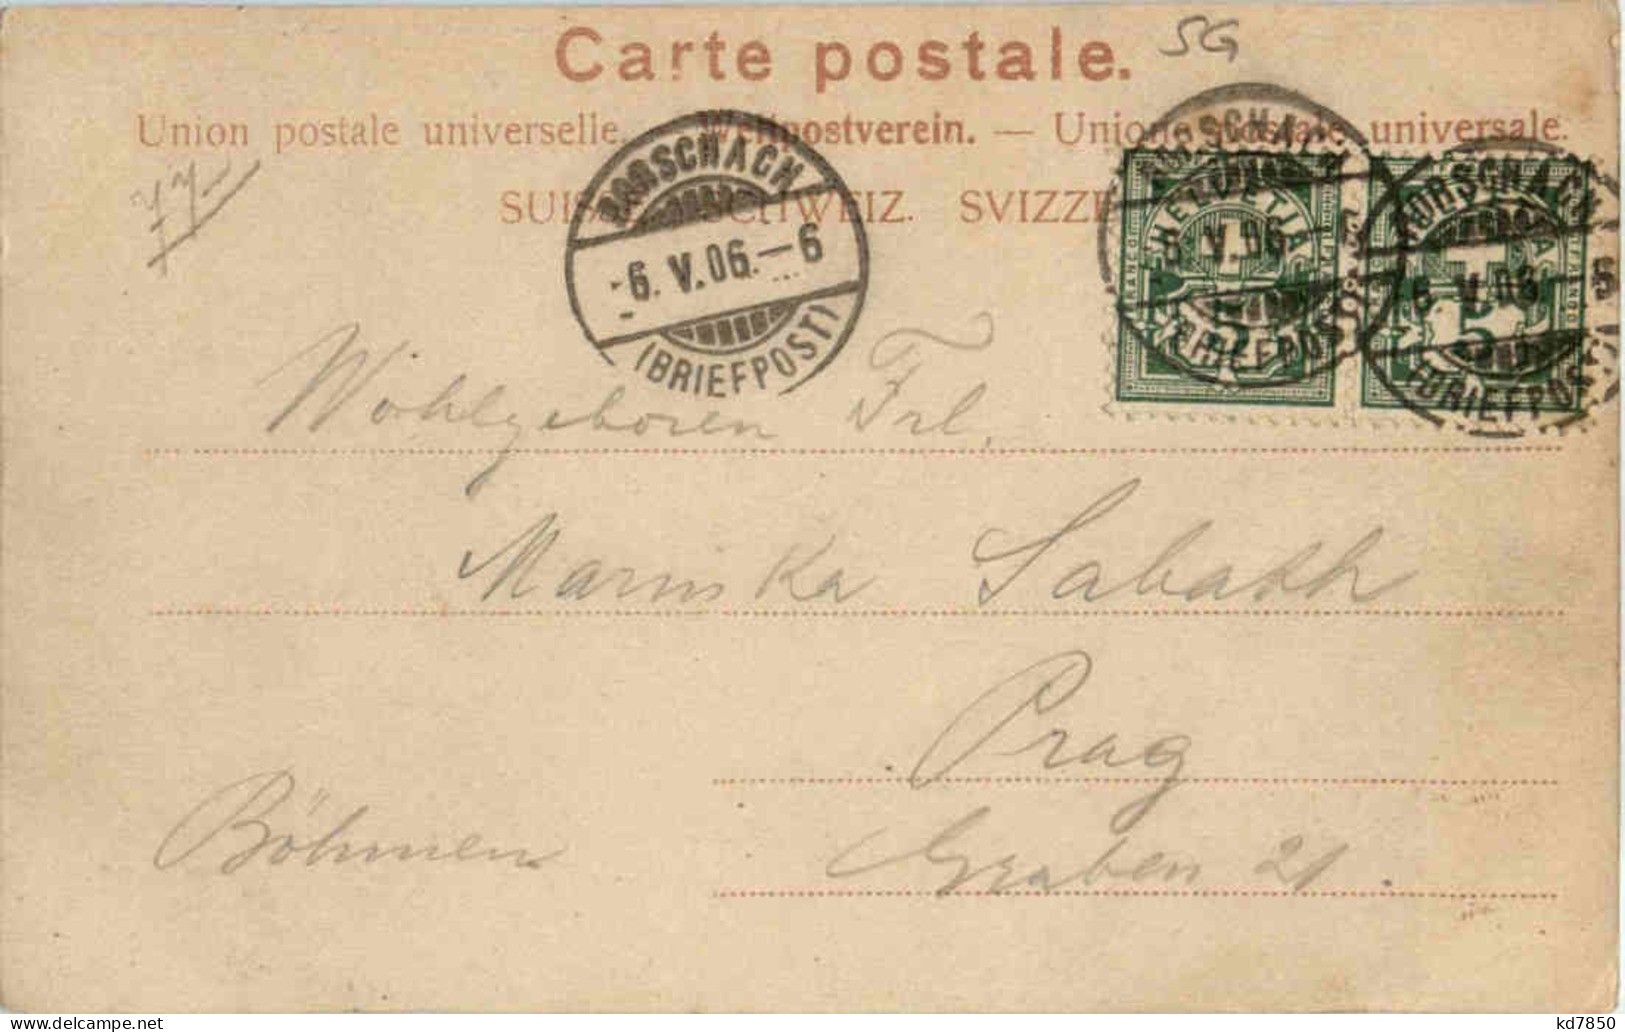 Carte postale.
SG
Union postale universelle. — Weltpostverein. — Unione postale universale.
SUISSE. SCHWEIZ. SVIZZERA
RORSCHACH
-6. V. 06. – 6
(BRIEFPOST)
RORSCHACH
6. V. 06
(BRIEFPOST)
HELVETIA
5
RORSCHACH
6 V. 06
(BRIEFPOST)
5
Wohlgeboren Frl.
Mariska Sabath
Prag
Böhmen
Graben 21.
kd7850